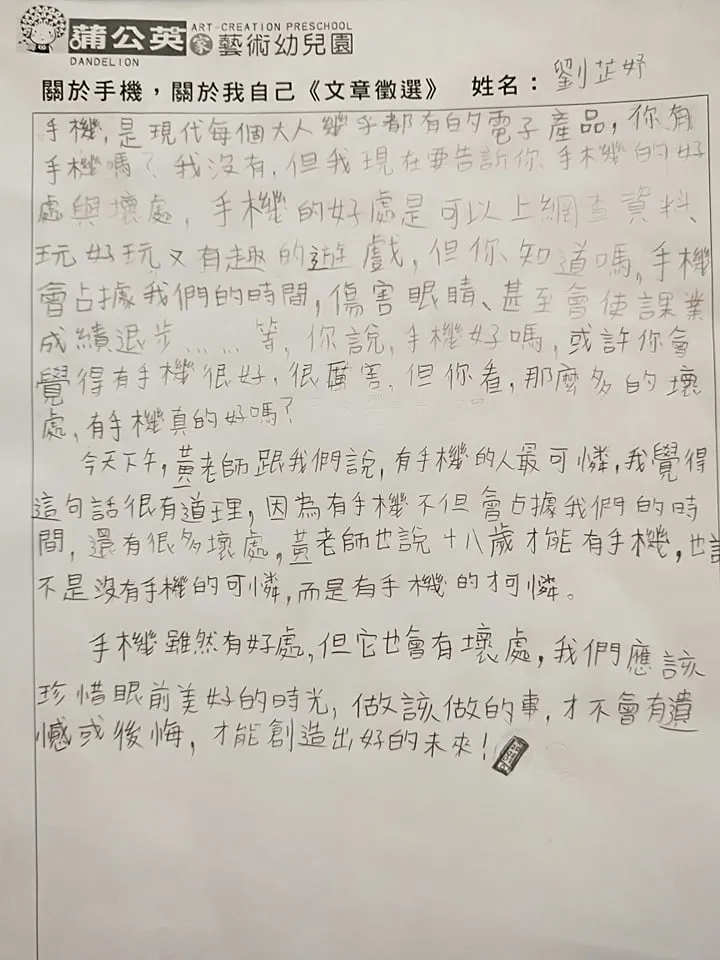 蒲公英家藝術幼兒園
ART-CREATION PRESCHOOL
DANDELION
關於手機，關於我自己《文章徵選》 姓名：劉芷妤
手機，是現代每個大人幾乎都有的電子產品，你有
手機嗎？我沒有，但我現在要告訴你、手機的好
處與壞處，手機的好處是可以上網查資料、
玩好玩又有趣的遊戲，但你知道嗎，手機
會占據我們的時間，傷害眼睛、甚至會使課業
成績退步……等，你說，手機好嗎，或許你會
覺得有手機很好，很厲害，但你看，那麼多的壞
處，有手機真的好嗎？
今天下午，黃老師跟我們說，有手機的人最可憐，我覺得
這句話很有道理，因為有手機不但會占據我們的時
間，還有很多壞處，黃老師也說十八歲才能有手機，也說
不是沒有手機的可憐，而是有手機的才可憐。
手機雖然有好處，但它也會有壞處，我們應該
珍惜眼前美好的時光，做該做的事，才不會有遺
憾或後悔，才能創造出好的未來！